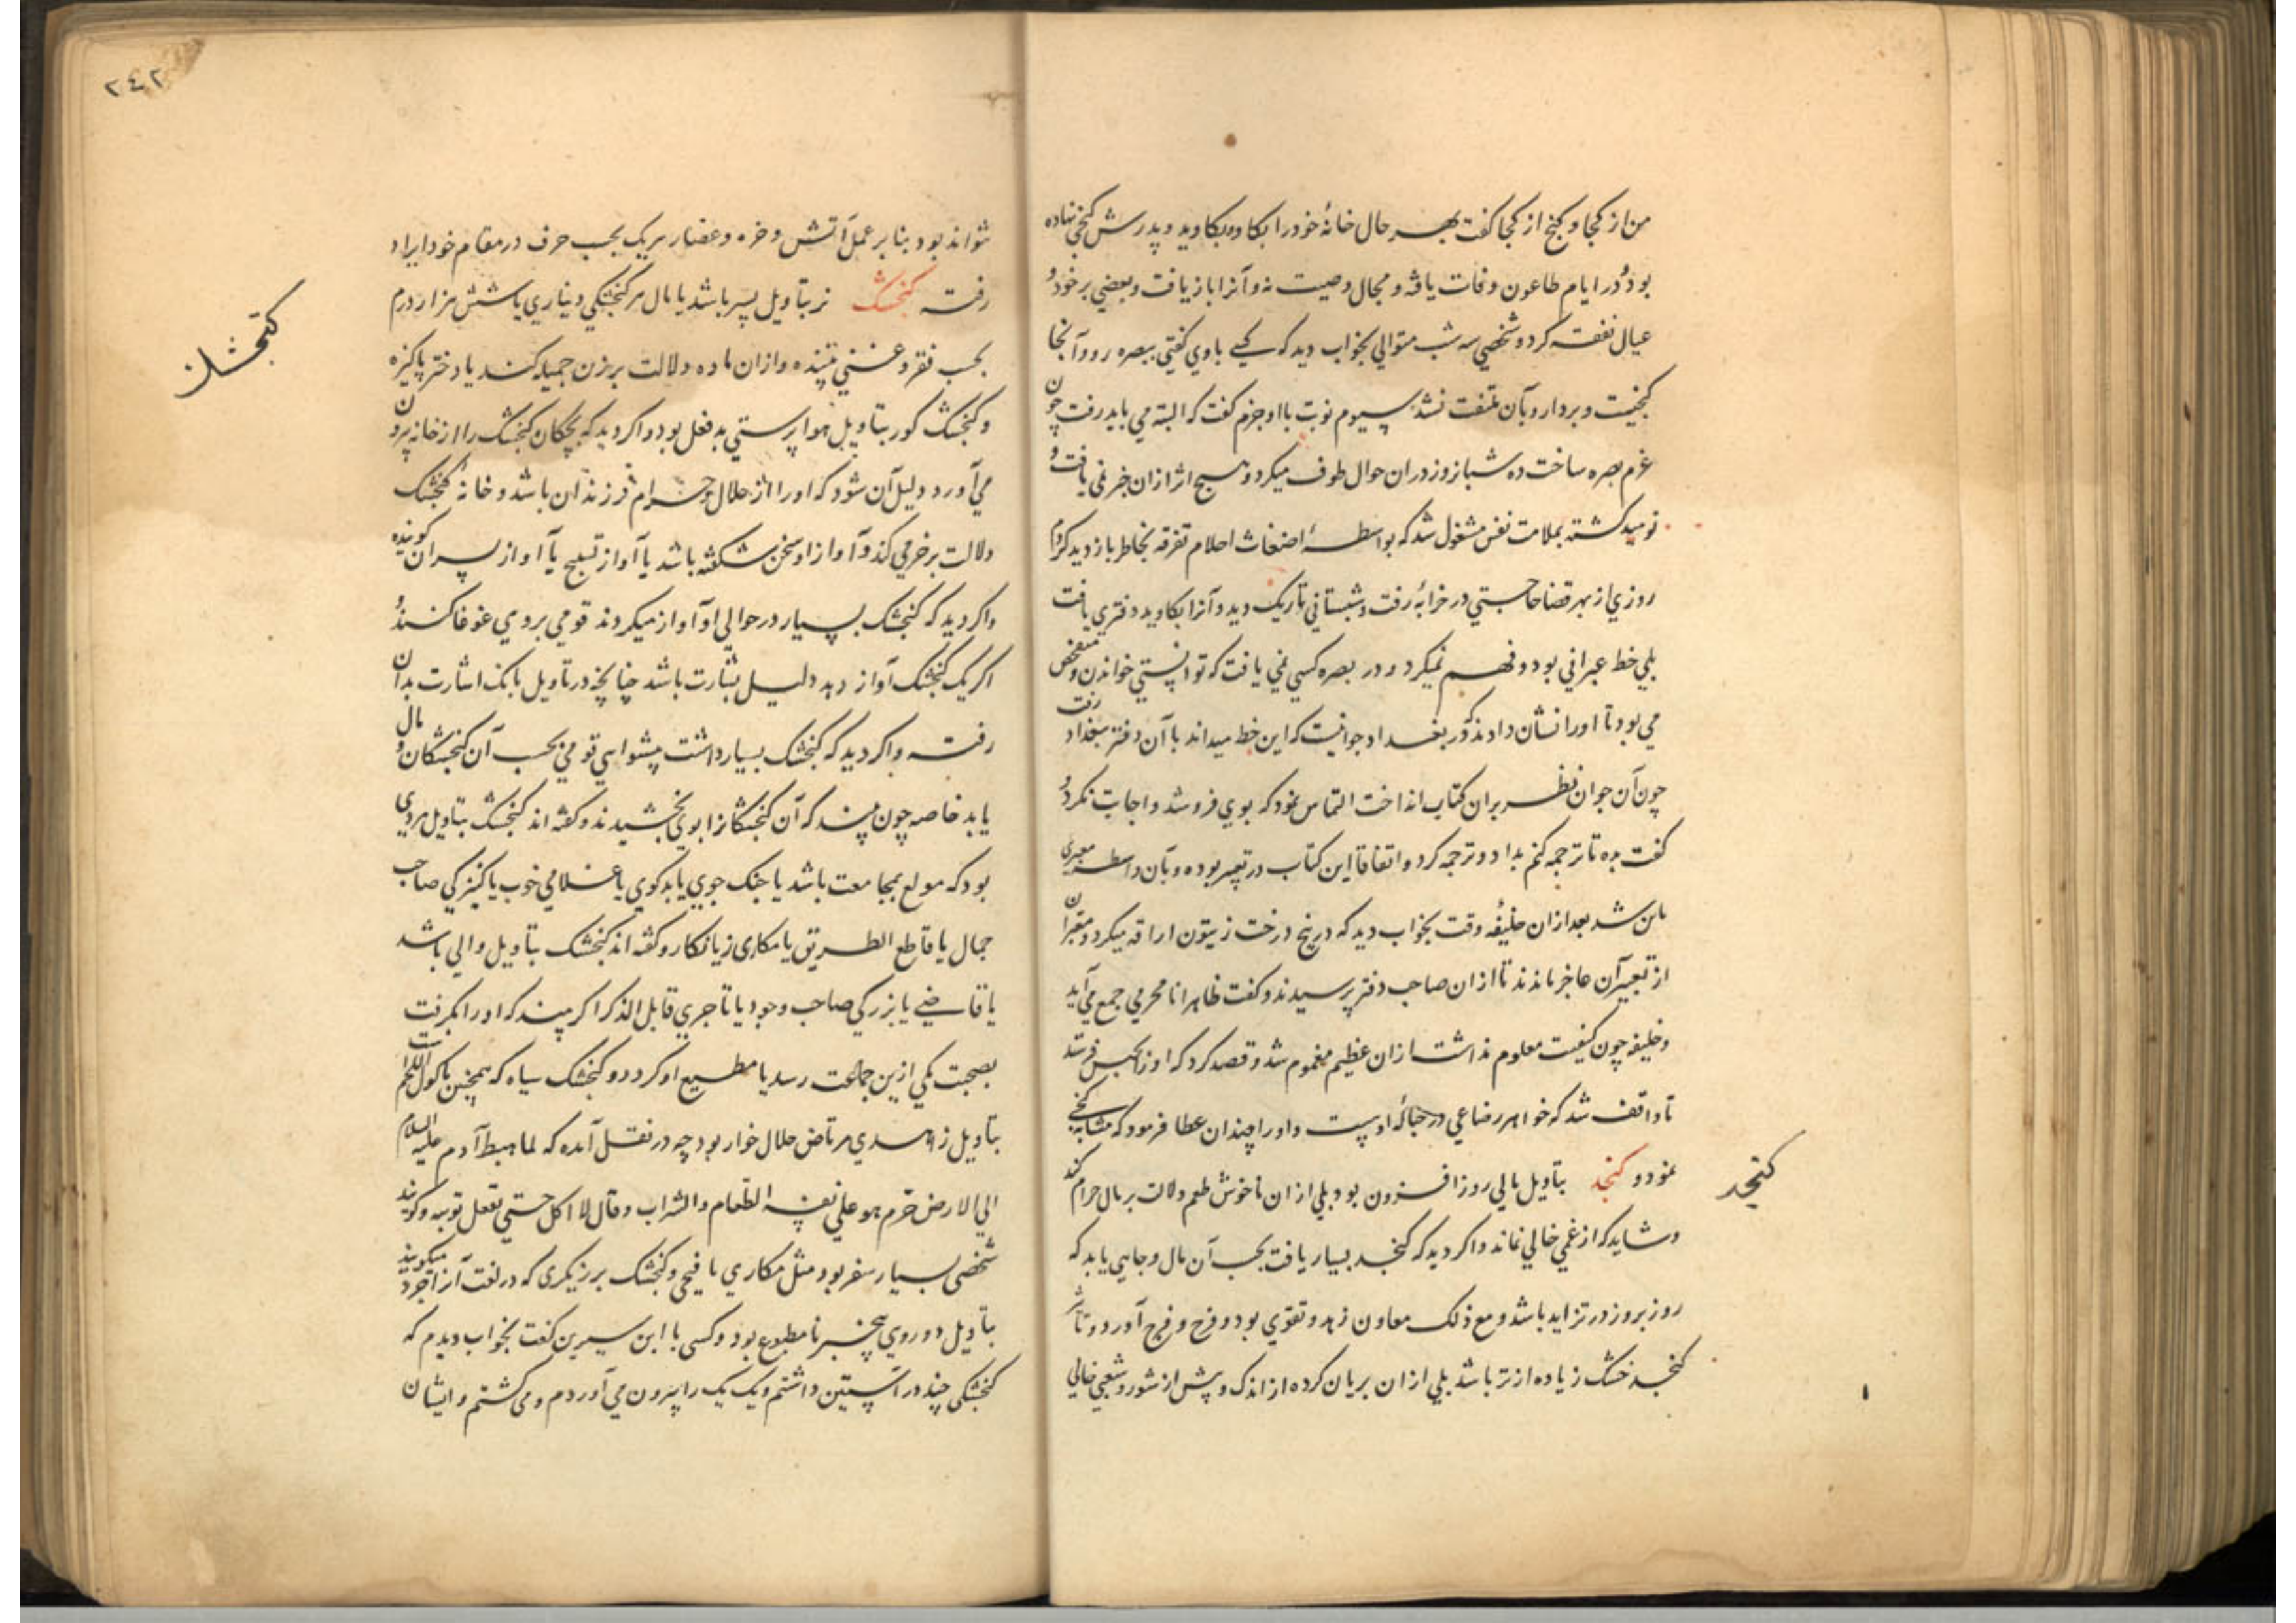 من از کجا و گنج از کجا گفت بهر حال خانهٔ خود را بکاو بکاوید و پدرش گنجی نهاده
بود و در ایام طاعون وفات یافه و مجال وصیت نه و آنرا بازیافت و بعضی بر خود و
عیال نفقه کرد و شخصی سه شب متوالی بخواب دید که کسی باوی گفتی ببصره رو و آنجا
گنجیست و بردار و بآن ملتفت نشد سیوم نوبت با او جزم گفت که البته می باید رفت چون
عزم بصره ساخت ده شبانروز در ان حوال طوف میکرد و هیچ اثر ازان خبر نمی یافت و
نومید گشته بملامت نفس مشغول شد که بواسطهٔ اضغاث احلام تفرقه بخاطر باز دید کردم
روزی از بهر قضا حاجتی در خرابهٔ رفت و شبستانی تاریک دید و آنرا بکاوید دفتری یافت
بلی خط عبرانی بود و فهم نمیکرد و در بصره کسی نمی یافت که توانستی خواندن و متفحص
می بود تا او را نشان دادند که در بغداد جوانیست که این خط میداند با آن دفتر ببغداد رفت
چون آن جوان نظر بران کتاب انداخت التماس نمود که بوی فروشد و اجابت نکرد و
گفت بده تا ترجمه کنم بداد و ترجمه کرد و اتفاقا این کتاب در تعبیر بوده و بآن واسطه معبری
شد بعد ازان خلیفه وقت بخواب دید که در بیخ درخت زیتون اراقه میکرد و معبران
از تعبیر آن عاجز ماندند تا ازان صاحب دفتر پرسیدند و گفت ظاهرا نا محرمی جمع می آید
و خلیفه چون کیفیت معلوم نداشت ازان عظیم مغموم شد و قصد کرد که او را بحبس فرستد
تا واقف شد که خواهر رضاعی در حبالهٔ اوست و او را چندان عطا فرمود که مشابه گنجی
نمود و کنجد بتاویل مالی روز افزون بود بلی ازان ناخوش طعم دلالت بر مال حرام کند
و شاید که از غمی خالی نماند و اگر دید که کنجد بسیار یافت بحسب آن مال و جاهی یابد که
روز بروز در تزاید باشد و مع ذلک معاون زهد و تقوی بود و فرح و فرج آورد و تاثیر
کنجد خشک زیاده از تر باشد بلی ازان بریان کرده از اندک و بیش از شور و شغبی خالی
کنجد
۲۴۲
نتواند بود بنا بر عمل آتش و خره و عصار هر یک بحسب حرف در مقام خود ایراد
رفت کنجشک نر بتاویل پسر باشد یا مال هر کنجشکی دیناری یا شش هزار درم
بحسب فقر و غنی بیننده و ازان ماده دلالت بر زن جمیله کند یا دختر پاکیزه
و کنجشک کور بتاویل هوا پرستی بد فعل بود و اگر دید که بچکان کنجشک را از خانه بیرون
می آورد دلیل آن شود که او را از حلال و حرام فرزندان باشد و خانهٔ کنجشک
دلالت بر خرمی کند و آواز او سخن شکفته باشد یا آواز تسبیح یا آواز پسران گوینده
و اگر دید که کنجشک بسیار در حوالی او آواز میکردند قومی بروی غوغا کنند و
اگر یک کنجشک آواز دهد دلیل بشارت باشد چنانچه در تاویل بانک اشارت بدان
رفت و اگر دید که کنجشک بسیار داشت پیشواهی قومی بحسب آن کنجشکان و مال
یابد خاصه چون بیند که آن کنجشکانرا بوی بخشیدند و گفته اند کنجشک بتاویل مردی
بود که مولع بمجامعت باشد یا جنک جوی یا بدکوی یا غلامی خوب یا کنیزکی صاحب
جمال یا قاطع الطریق یا مکاری زیانکار و گفته اند کنجشک بتاویل والی باشد
یا قاضی یا بزرگی صاحب وجود یا تاجری قابل الذکر اگر بیند که او را بگرفت
بصحبت یکی ازین جماعت رسد یا مطیع او گردد و کنجشک سیاه که همچنین ماکول اللحم است
بتاویل زاهدی مرتاض حلال خوار بود چه در نقل آمده که لما هبط آدم علیه السلام
الی الارض حرم هو علی نفسه الطعام والشراب و قال لا اکل حتی تقبل توبه و گویند
شخصی بسیار سفر بود مثل مکاری یا فیج و کنجشک برزیگری که در لغت آنرا میگویند
بتاویل دوروی بیخبر نا مطبوع بود و کسی با ابن سیرین گفت بخواب دیدم که
کنجشکی چند در آستین داشتم و یک یک را بیرون می آوردم و می کشتم و ایشان
کنجشک